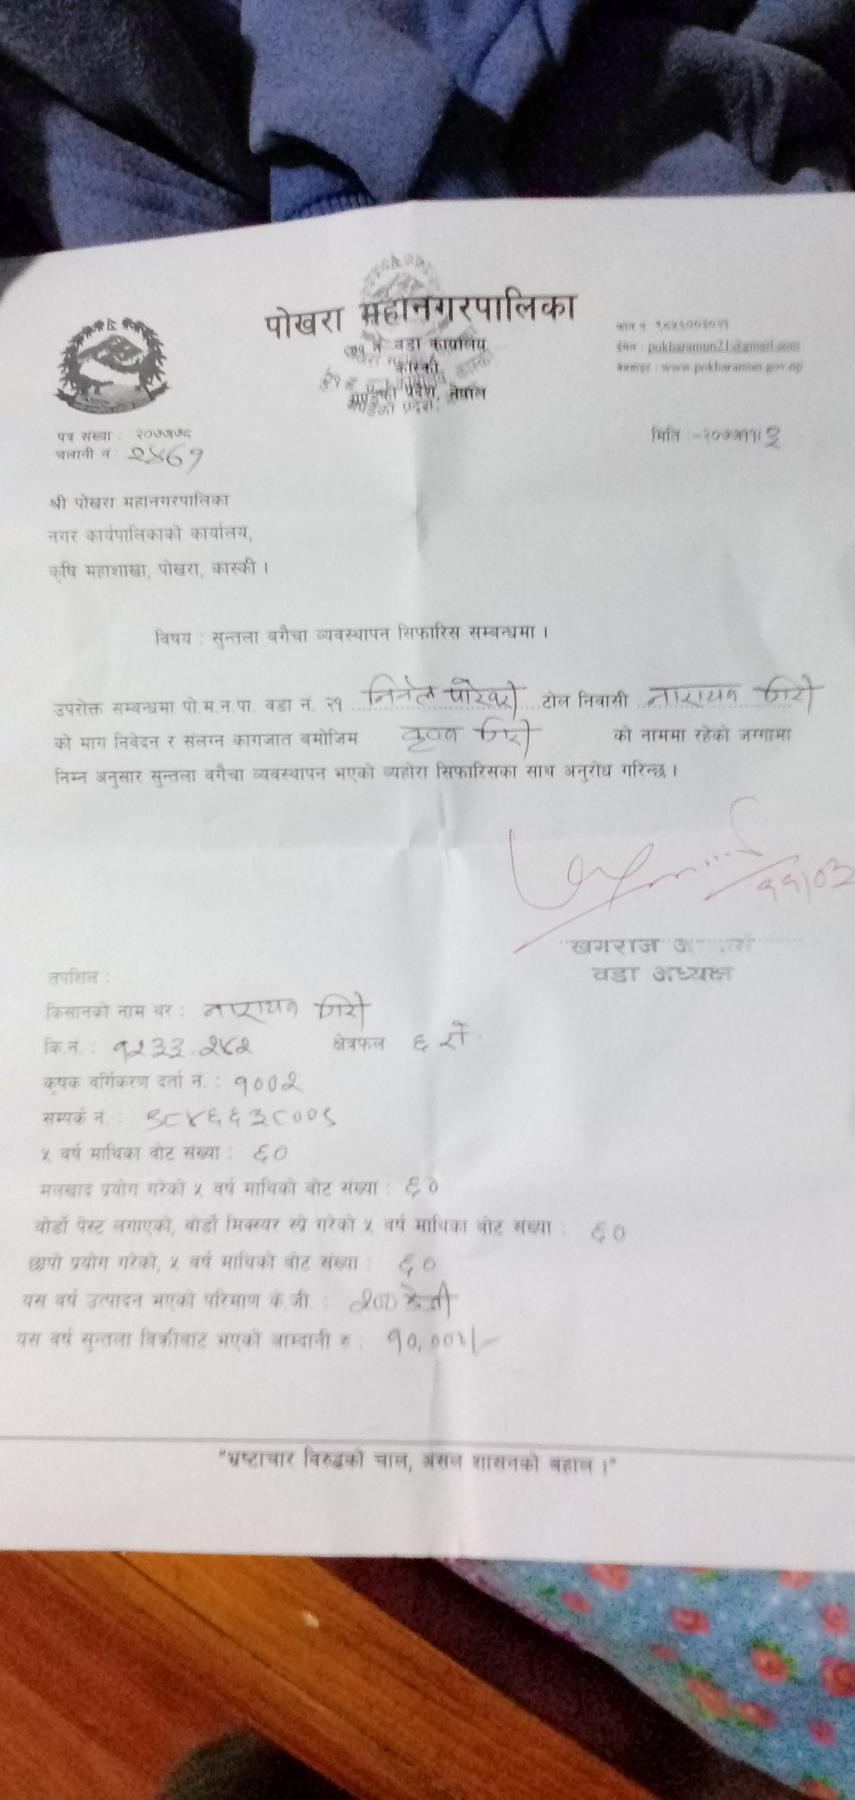 पोखरा महानगरपालिका
२१ नं वडा कार्यालय
कास्की
गण्डकी प्रदेश, नेपाल
ईमेल : pokharamun21@gmail.com
वेबसाइट : www.pokharamun.gov.np
पत्र संख्या : २०७७।७८
चलानी नं :
मिति :-२०७७।११।३
श्री पोखरा महानगरपालिका
नगर कार्यपालिकाको कार्यालय,
कृषि महाशाखा, पोखरा, कास्की ।
विषय : सुन्तला बगैचा व्यवस्थापन सिफारिस सम्बन्धमा ।
उपरोक्त सम्बन्धमा पो.म.न.पा. वडा नं. २१ टोल निवासी नारायण गिरी
को माग निवेदन र संलग्न कागजात बमोजिम कृष्ण गिरी को नाममा रहेको जग्गामा
निम्न अनुसार सुन्तला बगैचा व्यवस्थापन भएको व्यहोरा सिफारिसका साथ अनुरोध गरिन्छ ।
११।०३
खगराज
वडा अध्यक्ष
तपशिल :
किसानको नाम थर : नारायण गिरी
कि.नं. : १२३३.२४२ क्षेत्रफल ६ रो
कृषक वर्गिकरण दर्ता नं. : १००२
सम्पर्क नं. : ९८४६६३८००९
५ वर्ष माथिका बोट संख्या : ६०
मलखाद प्रयोग गरेको ५ वर्ष माथिको बोट संख्या : ६०
बोर्डो पेस्ट लगाएको, बोर्डो मिक्स्चर स्प्रे गरेको ५ वर्ष माथिका बोट संख्या : ६०
छापो प्रयोग गरेको, ५ वर्ष माथिको बोट संख्या : ६०
यस वर्ष उत्पादन भएको परिमाण के.जी. : २०० केजी
यस वर्ष सुन्तला बिक्रीबाट भएको आम्दानी रु : १०,०००/-
"भ्रष्टाचार विरुद्धको चाल, असल शासनको बहाल ।"